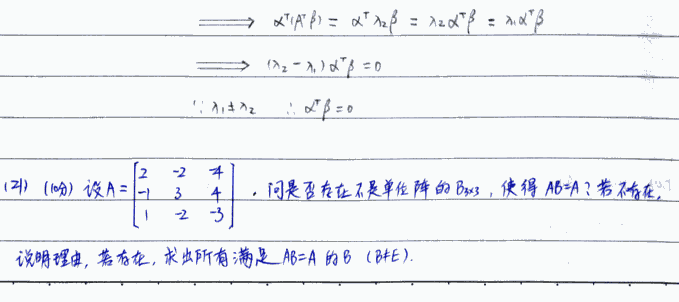 ⟹ α^T(A^Tβ) = α^Tλ₂β = λ₂α^Tβ = λ₁α^Tβ
⟹ (λ₂-λ₁)α^Tβ=0
∵ λ₁≠λ₂ ∴ α^Tβ=0
(21) (10分) 设A=[2 -2 -4; -1 3 4; 1 -2 -3]. 问是否存在不是单位阵的B₃ₓ₃, 使得AB=A? 若不存在,
说明理由, 若存在, 求出所有满足AB=A的B (B≠E).